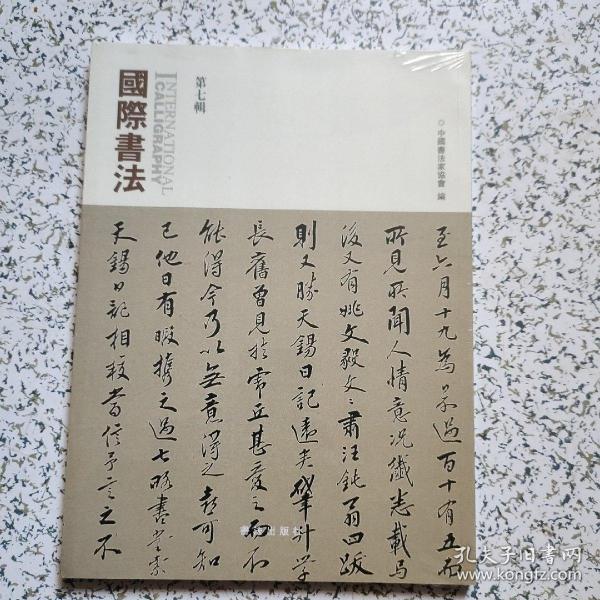 國際書法
INTERNATIONAL
CALLIGRAPHY
第七輯
中國書法家協會 編
至六月十九爲
過百十有五而
所見所聞人情意況纖悉載焉
後又有姚文毅文〻肅汪鈍翁四跋
則又勝天錫日記遠矣
升學
長舊曾見於
丘甚愛之而不
能得今乃以無意得之
可知
已他日有暇攜之過七
書堂
天錫日記相校當信予言之不
書法出版社
孔夫子旧书网
www.kongfz.com